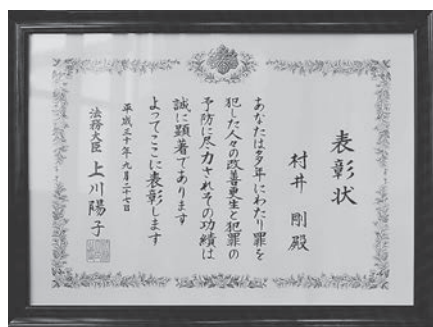 表彰状
村井 剛 殿
あなたは多年にわたり罪を
犯した人々の改善更生と犯罪の
予防に尽力されその功績は
誠に顕著であります
よってここに表彰します
平成三十年九月二十七日
法務大臣 上川陽子